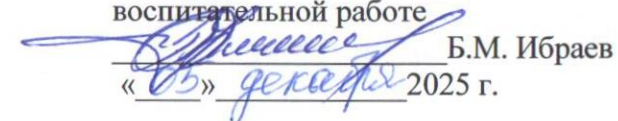 воспитательной работе
Б.М. Ибраев
«05» декабря 2025 г.